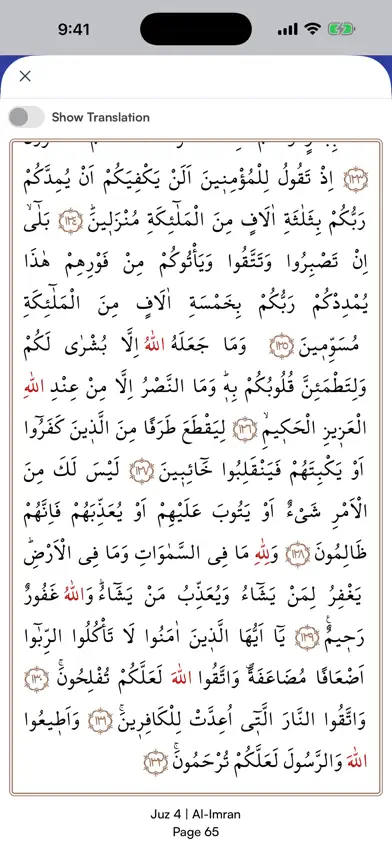 9:41
Show Translation
﴿١٢٣﴾ اِذْ تَقُولُ لِلْمُؤْمِنٖينَ اَلَنْ يَكْفِيَكُمْ اَنْ يُمِدَّكُمْ
رَبُّكُمْ بِثَلٰثَةِ اٰلَافٍ مِنَ الْمَلٰٓئِكَةِ مُنْزَلٖينَۜ ﴿١٢٤﴾ بَلٰٓىۙ
اِنْ تَصْبِرُوا وَتَتَّقُوا وَيَأْتُوكُمْ مِنْ فَوْرِهِمْ هٰذَا
يُمْدِدْكُمْ رَبُّكُمْ بِخَمْسَةِ اٰلَافٍ مِنَ الْمَلٰٓئِكَةِ
مُسَوِّمٖينَ ﴿١٢٥﴾ وَمَا جَعَلَهُ اللّٰهُ اِلَّا بُشْرٰى لَكُمْ
وَلِتَطْمَئِنَّ قُلُوبُكُمْ بِهٖۜ وَمَا النَّصْرُ اِلَّا مِنْ عِنْدِ اللّٰهِ
الْعَزٖيزِ الْحَكٖيمِۙ ﴿١٢٦﴾ لِيَقْطَعَ طَرَفًا مِنَ الَّذٖينَ كَفَرُٓوا
اَوْ يَكْبِتَهُمْ فَيَنْقَلِبُوا خَٓائِبٖينَ ﴿١٢٧﴾ لَيْسَ لَكَ مِنَ
الْاَمْرِ شَيْءٌ اَوْ يَتُوبَ عَلَيْهِمْ اَوْ يُعَذِّبَهُمْ فَاِنَّهُمْ
ظَالِمُونَ ﴿١٢٨﴾ وَلِلّٰهِ مَا فِى السَّمٰوَاتِ وَمَا فِى الْاَرْضِۜ
يَغْفِرُ لِمَنْ يَشَٓاءُ وَيُعَذِّبُ مَنْ يَشَٓاءُۜ وَاللّٰهُ غَفُورٌ
رَحٖيمٌ۟ ﴿١٢٩﴾ يَٓا اَيُّهَا الَّذٖينَ اٰمَنُوا لَا تَأْكُلُوا الرِّبٰٓوا
اَضْعَافًا مُضَاعَفَةًۖ وَاتَّقُوا اللّٰهَ لَعَلَّكُمْ تُفْلِحُونَۚ ﴿١٣٠﴾
وَاتَّقُوا النَّارَ الَّتٖٓى اُعِدَّتْ لِلْكَافِرٖينَۚ ﴿١٣١﴾ وَاَطٖيعُوا
اللّٰهَ وَالرَّسُولَ لَعَلَّكُمْ تُرْحَمُونَۚ ﴿١٣٢﴾
Juz 4 | Al-Imran
Page 65